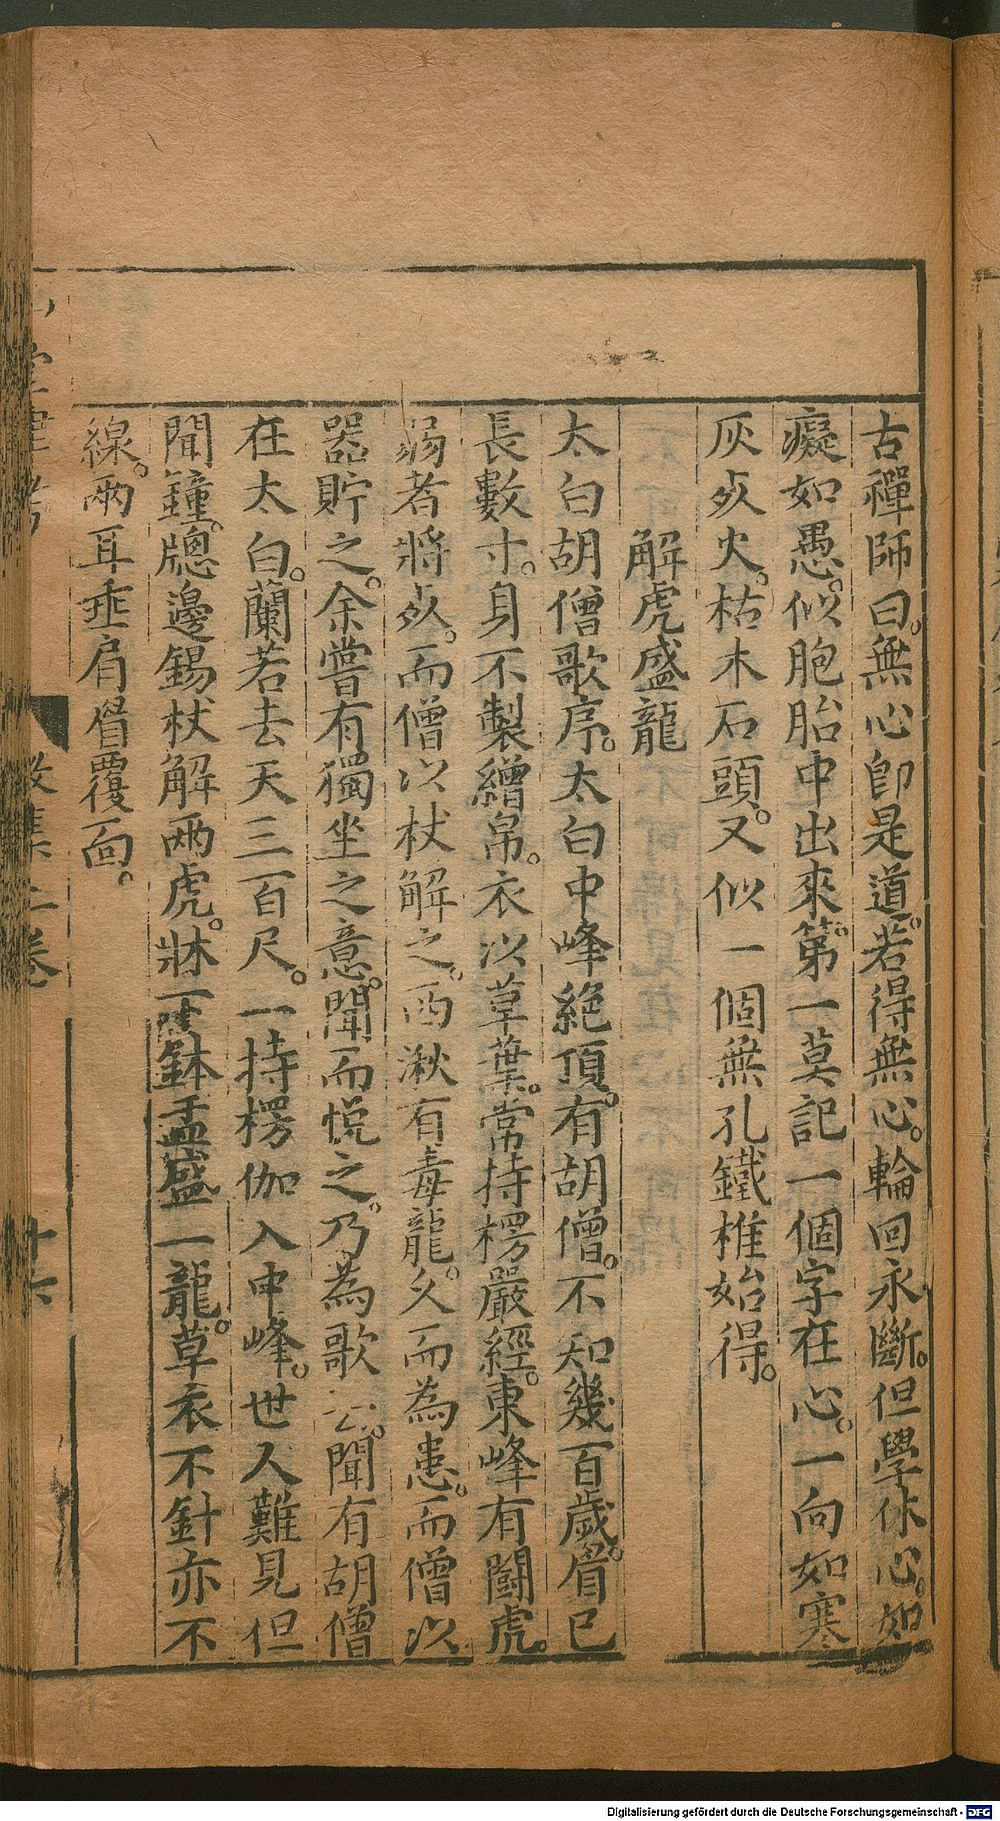 古禪師曰。無心卽是道。若得無心。輪回永斷。但學休心。如
癡如愚。似胞胎中出來。第一莫記一個字在心。一向如寒
灰死火。枯木石頭。又似一個無孔鐵椎始得。
解虎盛龍
太白胡僧歌序。太白中峰絶頂。有胡僧。不知幾百歲。眉已
長數寸。身不製繒帛。衣以草葉。常持楞嚴經。東峰有鬪虎。
弱者將死。而僧以杖解之。西湫有毒龍。久而為患。而僧以
器貯之。余嘗有獨坐之意。聞而悅之。乃為歌云。聞有胡僧
在太白。蘭若去天三百尺。一持楞伽入中峰。世人難見但
聞鐘。牕邊錫杖解兩虎。牀下鉢盂盛一龍。草衣不針亦不
線。兩耳垂肩眉覆面。
二卷
十六
Digitalisierung gefördert durch die Deutsche Forschungsgemeinschaft - DFG